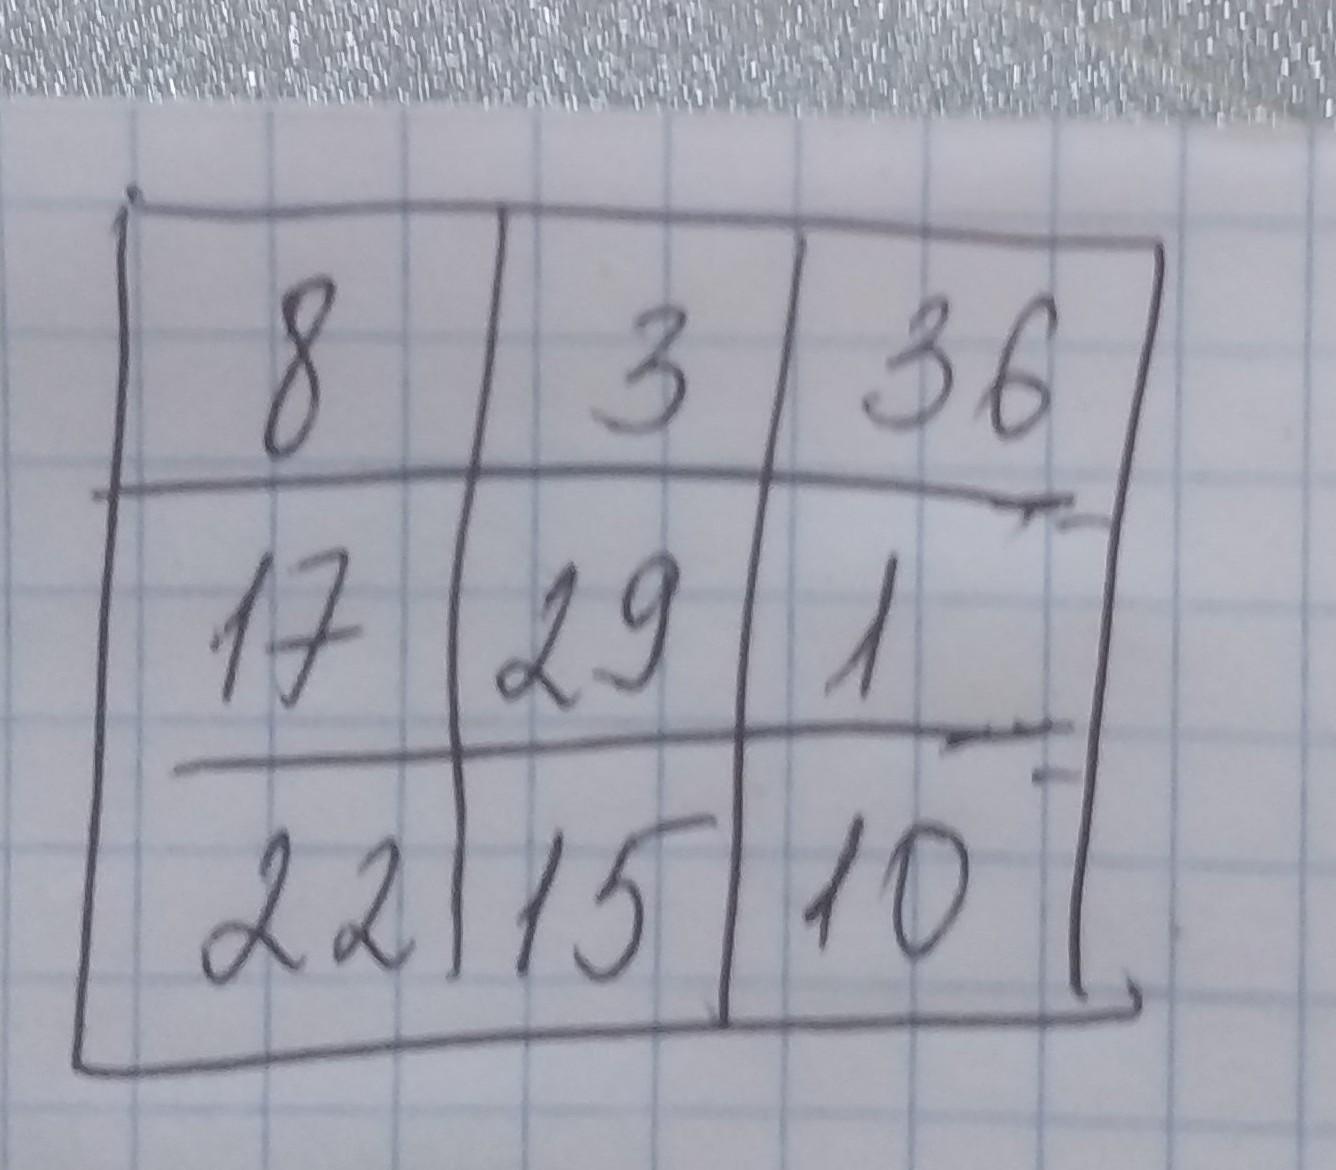 8 3 36
17 29 1
22 15 10